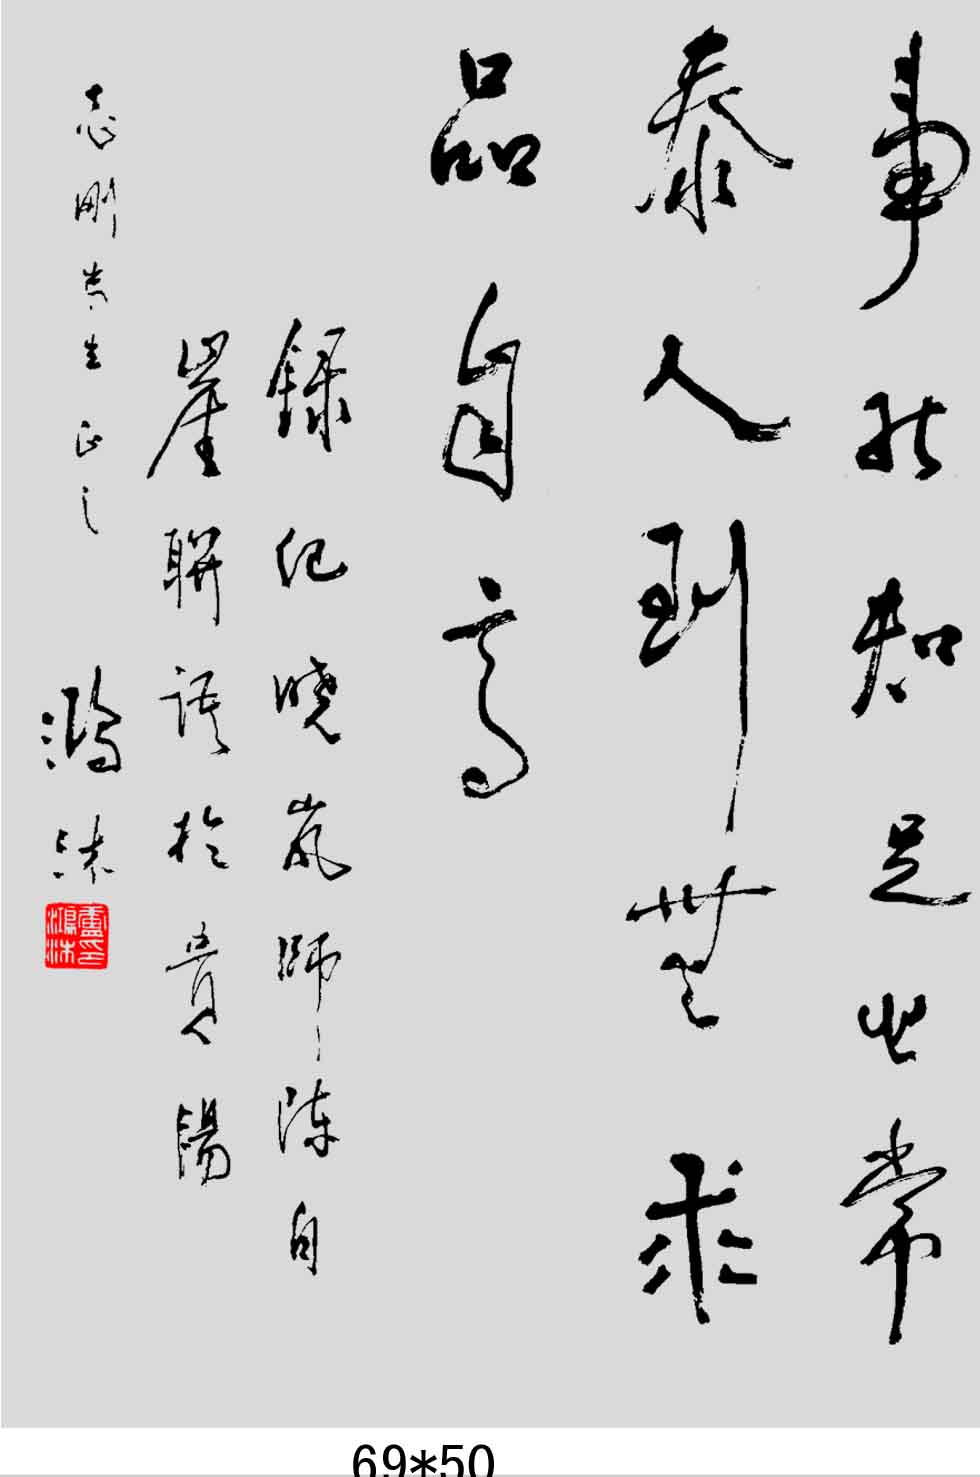 事能知足心常
泰人到無求
品自高
錄纪晓岚師陈白
崖聯語於貴陽
志刚先生正之
鴻沫
盧印鴻沫
69*50